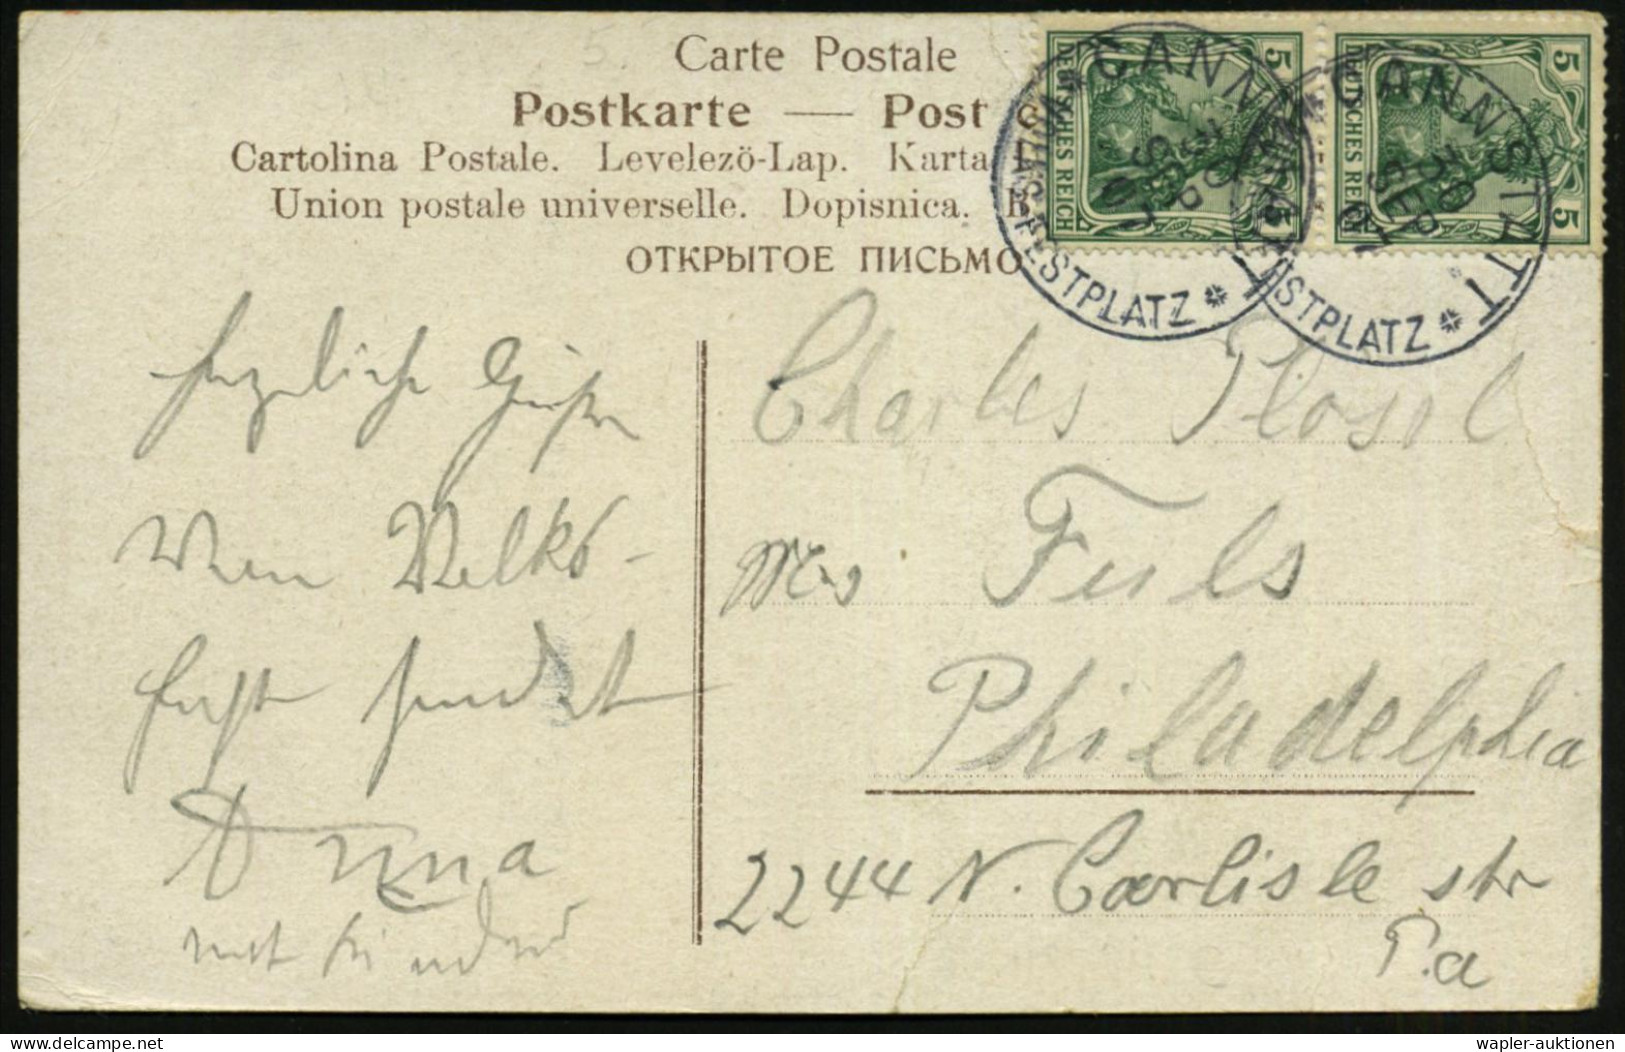 Carte Postale
Postkarte — Post
Cartolina Postale. Levelezö-Lap. Karta
Union postale universelle. Dopisnica.
ОТКРЫТОЕ ПИСЬМО
5 DEUTSCHES REICH 5
5 DEUTSCHES REICH 5
CANNSTATT
30 SEP 07
VOLKSFESTPLATZ
CANNSTATT
30 SEP 07
STPLATZ
herzliche Grüße
vom Volks-
fest sendet
Anna
mit Kinder
Charles
Mrs Fuls
Philadelphia
2244 N. Carlisle str
P.a
wapler-auktionen